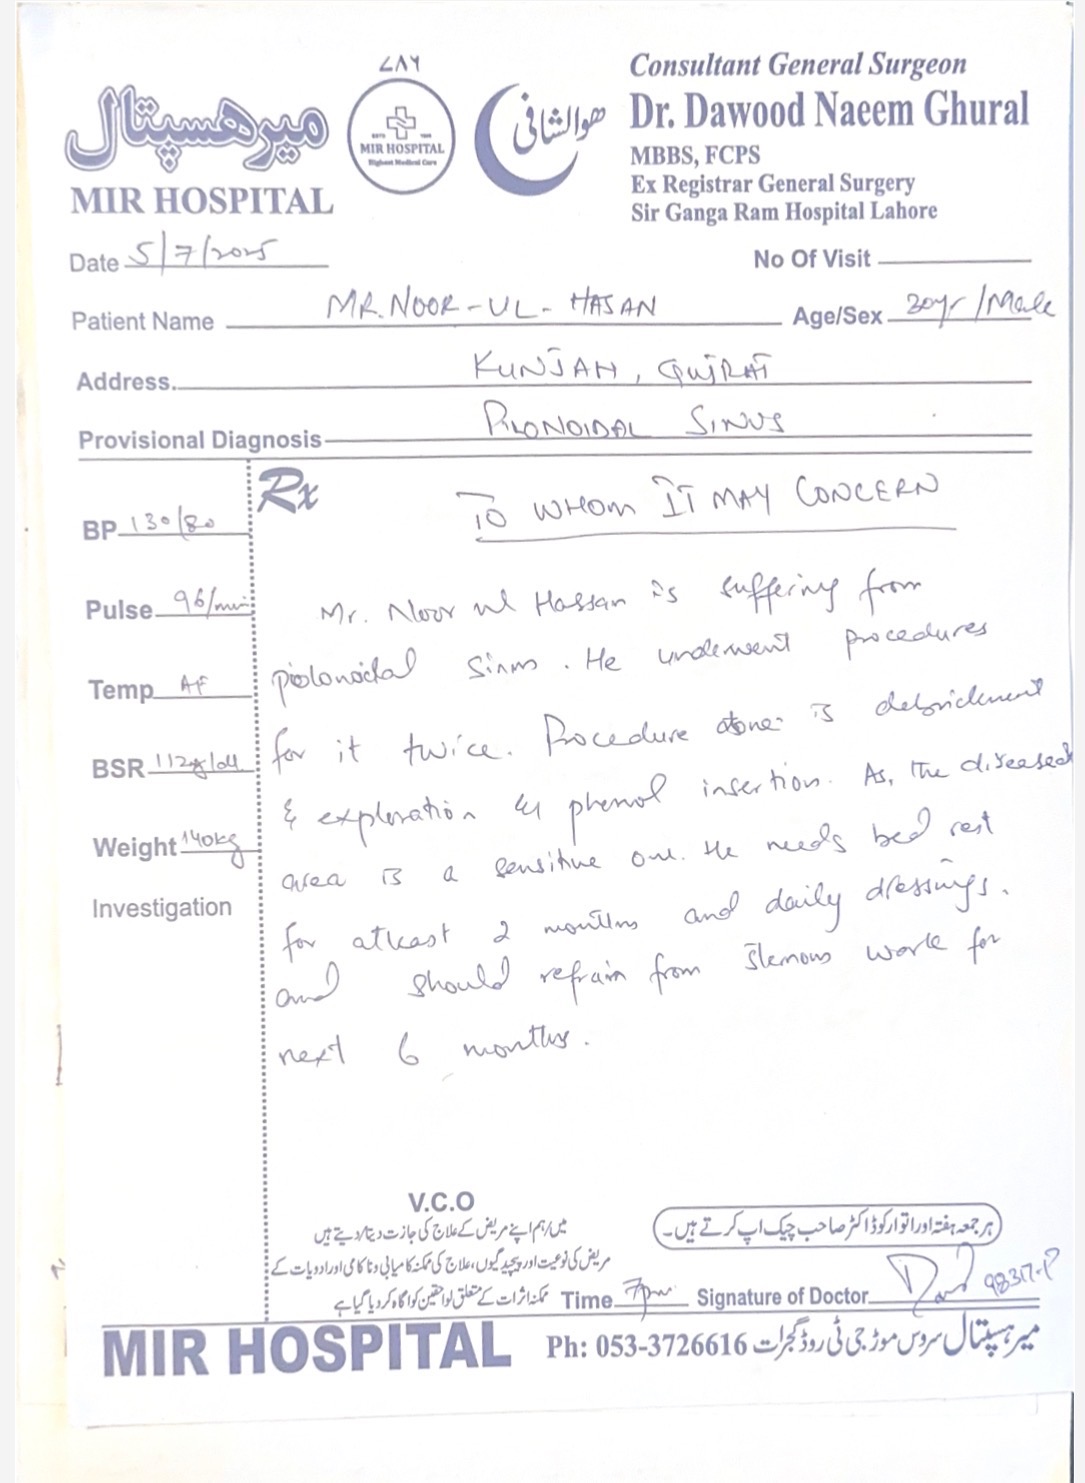 ۷۸۶
میر ہسپتال
MIR HOSPITAL
MIR HOSPITAL
Highest Medical Care
ھوالشافی
Consultant General Surgeon
Dr. Dawood Naeem Ghural
MBBS, FCPS
Ex Registrar General Surgery
Sir Ganga Ram Hospital Lahore
Date 5/7/2025
No Of Visit
Patient Name MR. NOOR-UL-HASAN
Age/Sex 30yr/Male
Address. KUNJAH, GUJRAT
Provisional Diagnosis PILONOIDAL SINUS
Rx
TO WHOM IT MAY CONCERN
BP 130/80
Pulse 96/min
Temp AF
BSR 112g/dl
Weight 140kg
Investigation
Mr. Noor ul Hassan is suffering from
pilonoidal sinus. He underwent procedures
for it twice. Procedure done is debridement
& exploration & phenol insertion. As, the diseased
area is a sensitive one. He needs bed rest
for atleast 2 months and daily dressings.
and should refrain from strenous work for
next 6 months.
V.C.O
میں/ہم اپنے مریض کے علاج کی اجازت دیتا/دیتے ہیں
مریض کی نوعیت اور پیچیدگیوں، علاج کی ممکنہ کامیابی و ناکامی اور ادویات کے
ممکنہ اثرات کے متعلق لواحقین کو آگاہ کر دیا گیا ہے
ہر جمعہ ہفتہ اور اتوار کو ڈاکٹر صاحب چیک اپ کرتے ہیں۔
Time 7pm
Signature of Doctor 98317-P
MIR HOSPITAL
Ph: 053-3726616
میر ہسپتال سروس موڑ جی ٹی روڈ گجرات